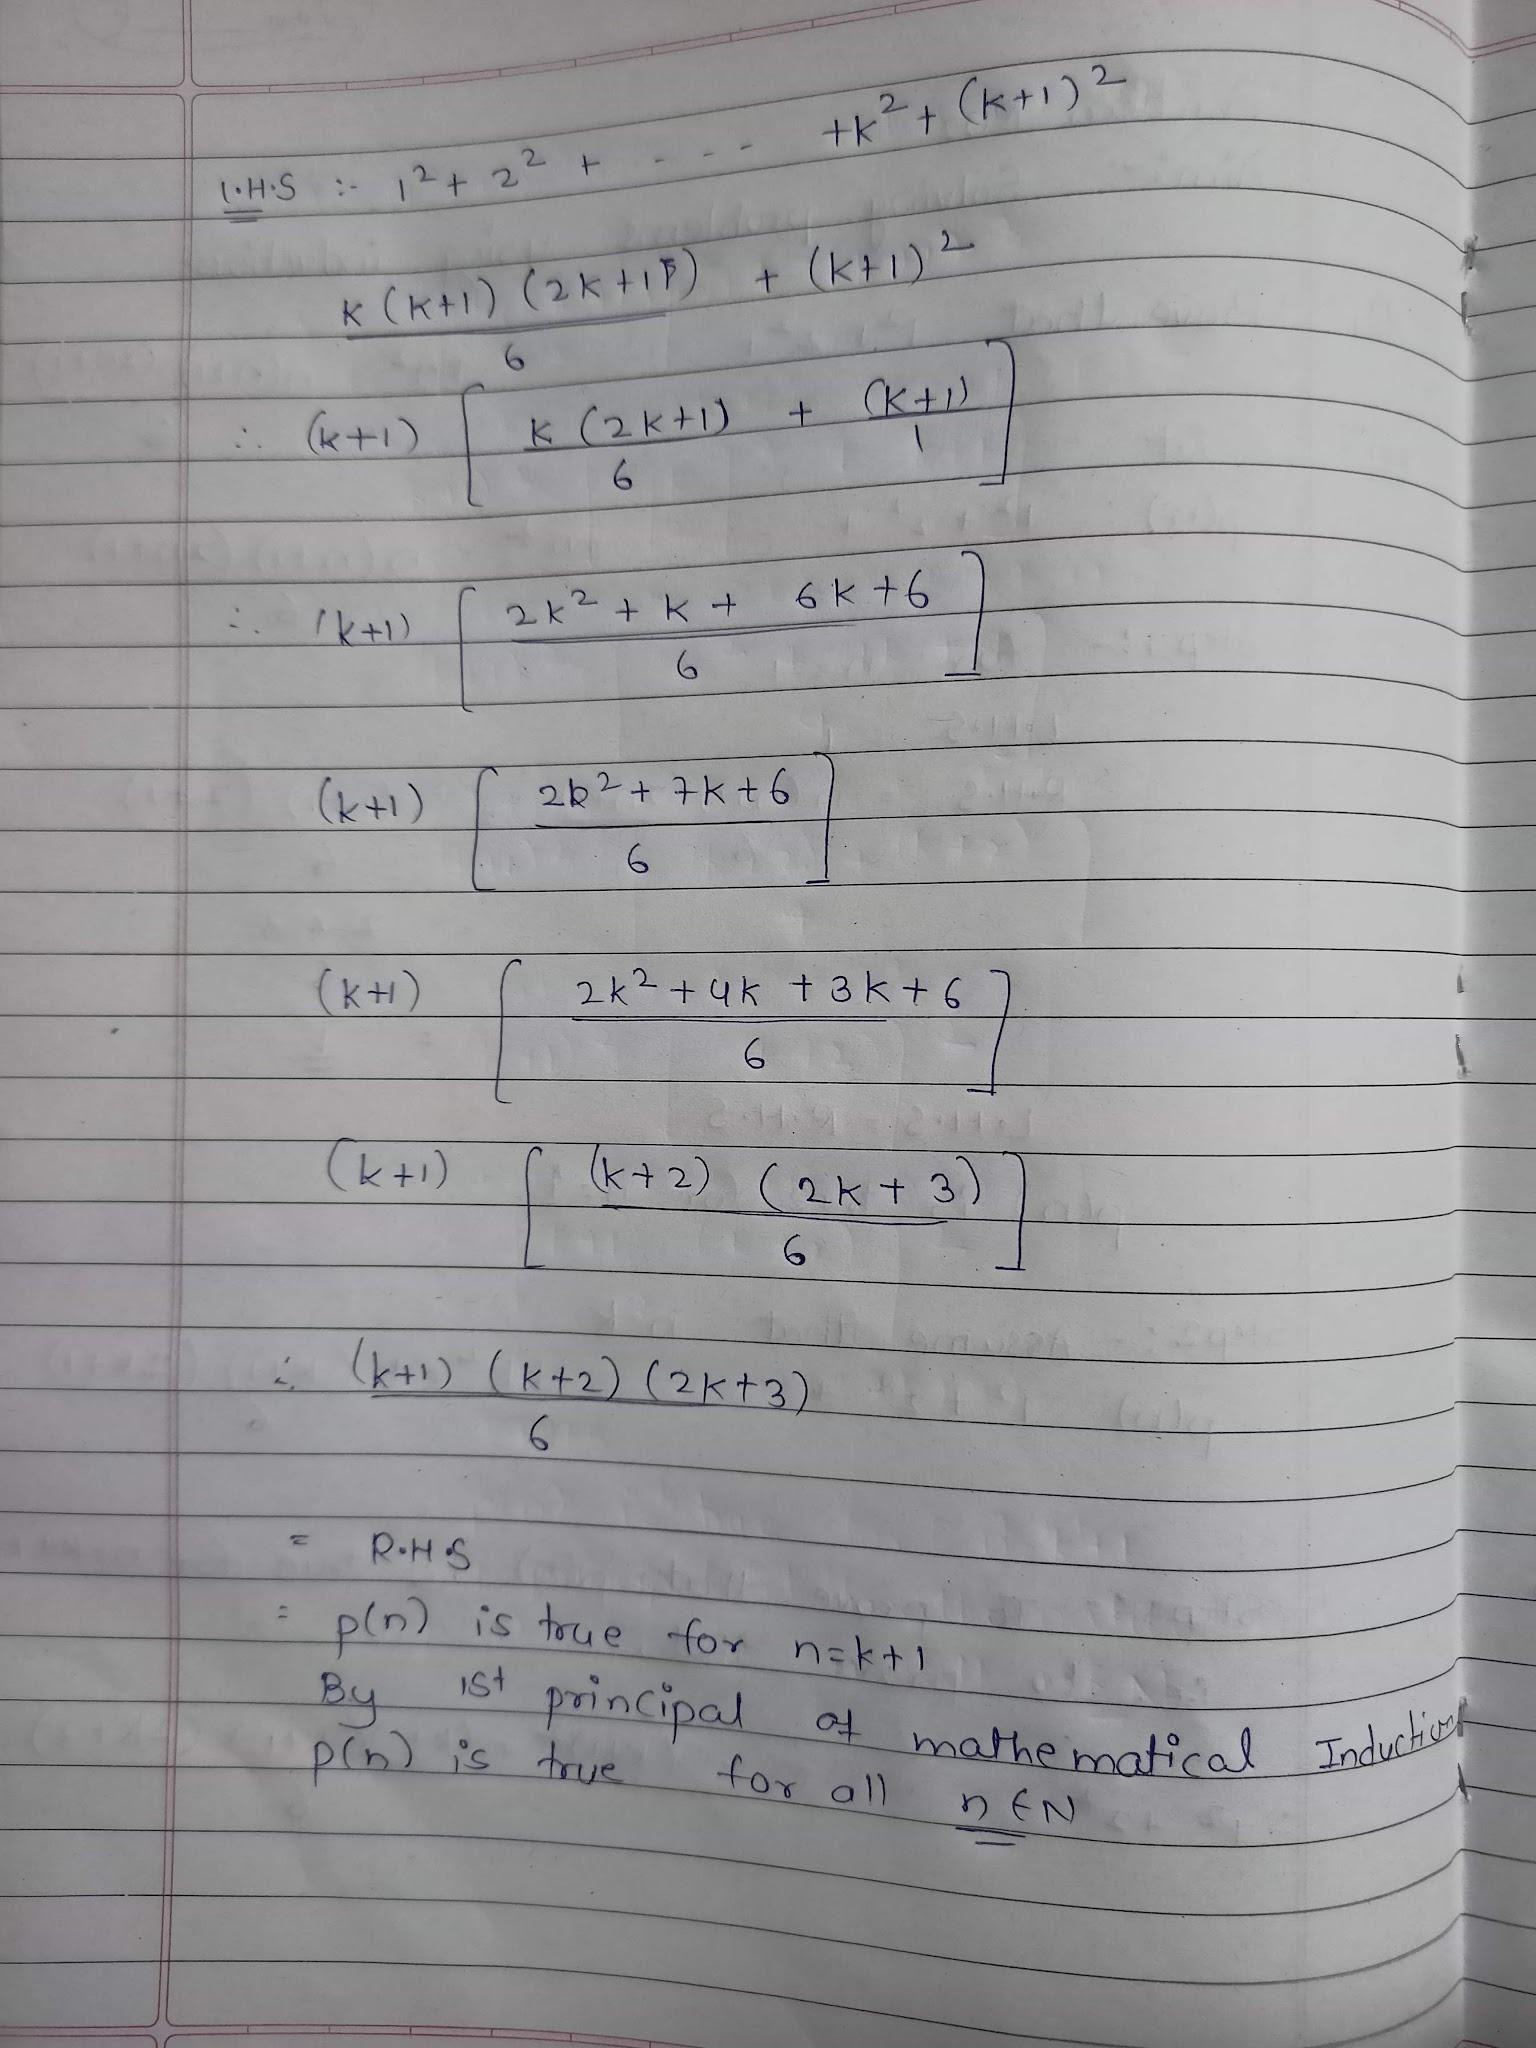 L.H.S :- 1² + 2² + - - - - +k² + (k+1)²
k (k+1) (2k+1) / 6 + (k+1)²
∴ (k+1) [ k (2k+1) / 6 + (k+1) / 1 ]
∴ (k+1) [ 2k² + k + 6k + 6 / 6 ]
(k+1) [ 2k² + 7k + 6 / 6 ]
(k+1) [ 2k² + 4k + 3k + 6 / 6 ]
(k+1) [ (k+2) (2k + 3) / 6 ]
∴ (k+1) (k+2) (2k+3) / 6
= R.H.S
= p(n) is true for n=k+1
By 1st principal of mathematical Induction
p(n) is true for all n ∈ N